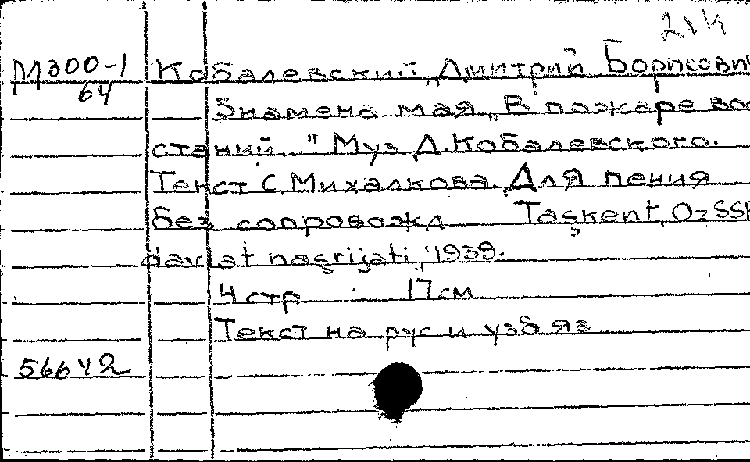 214
М300-1 Кабалевский, Дмитрий Борисович
64
Знамена мая „В пожаре вос
станий..." Муз. Д. Кобалевского.
Текст С. Михалкова. Для пения
без сопровожд Taşkent, OzSSR
davlat naşrijati, 1939.
4 стр. 17 см
Текст на рус и узб яз
56642